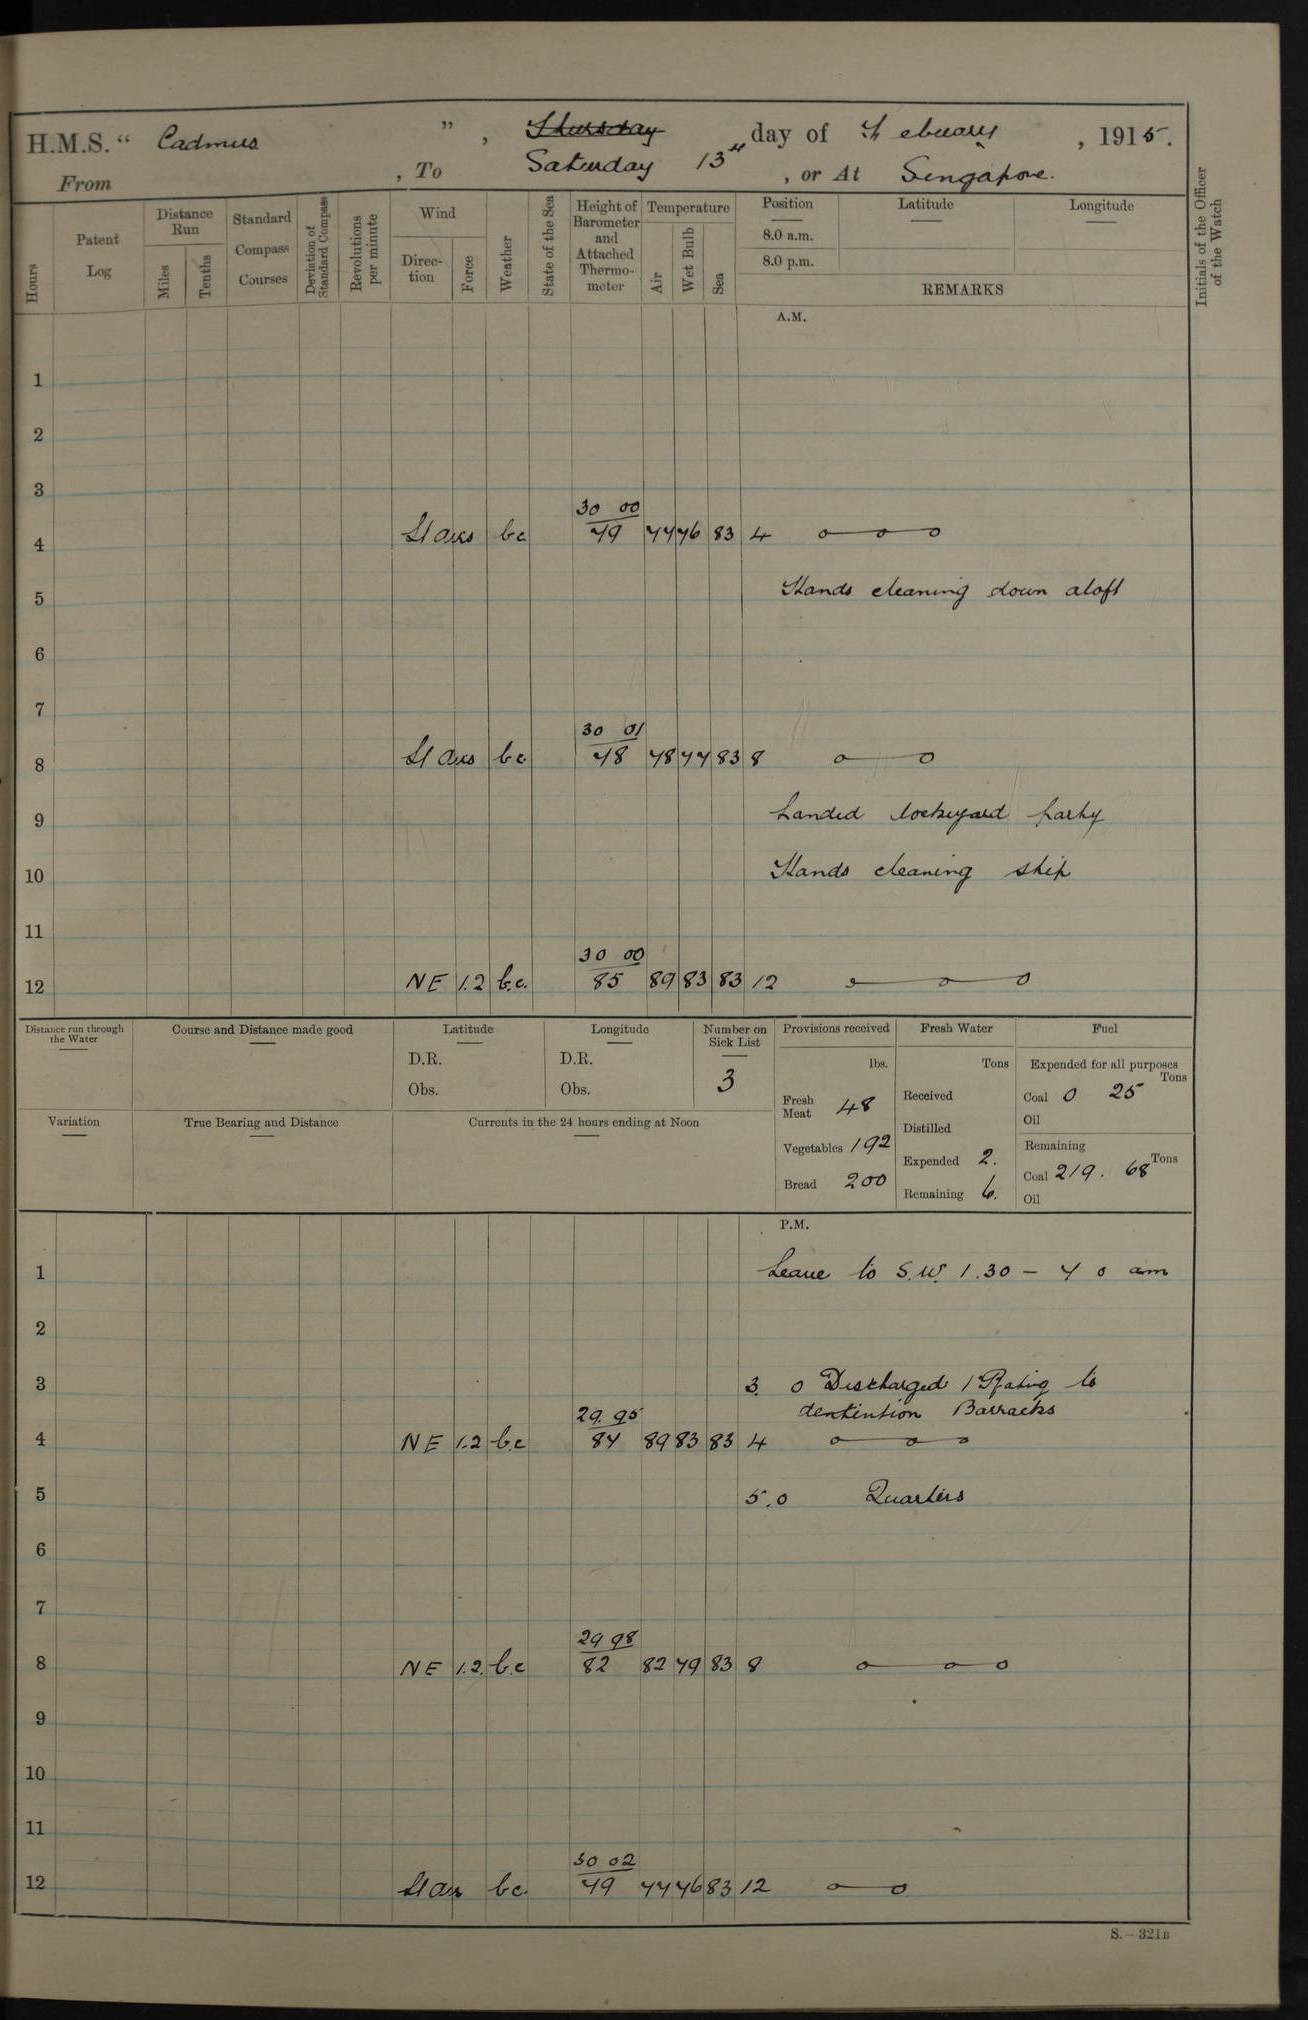 H.M.S. “ Cadmus ” , Thursday day of February , 1915.
From , To Saturday 13th , or At Singapore.
Hours
Patent Log
Distance Run
Miles
Tenths
Standard Compass Courses
Deviation of Standard Compass
Revolutions per minute
Wind
Direction
Force
Weather
State of the Sea
Height of Barometer and Attached Thermometer
Temperature
Air
Wet Bulb
Sea
Position
8.0 a.m.
8.0 p.m.
Latitude
Longitude
REMARKS
Initials of the Officer of the Watch
A.M.
1
2
3
30 00
4 bc 79 77 76 83 4
Hands cleaning down aloft
5
6
7
30 01
8 bc 78 78 77 83 8
9 Landed dockyard party
10 Hands cleaning ship
11
30 00
12 NE 1.2 b.c. 85 89 83 83 12
Distance run through the Water
Course and Distance made good
Latitude
D.R.
Obs.
Longitude
D.R.
Obs.
Number on Sick List
3
Provisions received
lbs.
Fresh Meat 48
Vegetables 192
Bread 200
Fresh Water
Tons
Received
Distilled
Expended 2.
Remaining 6.
Fuel
Expended for all purposes
Tons
Coal 0 25
Oil
Remaining
Tons
Coal 219. 68
Oil
Variation
True Bearing and Distance
Currents in the 24 hours ending at Noon
P.M.
1 Leave to S.W. 1.30 - 7 0 am
2
3 3. 0 Discharged 1 Rating to
detention Barracks
29.95
4 NE 1.2 bc 87 89 83 83 4
5 5.0 Quarters
6
7
29 98
8 NE 1.2. b.c 82 82 79 83 8
9
10
11
30 02
12 bc. 79 77 76 83 12
S.—321B